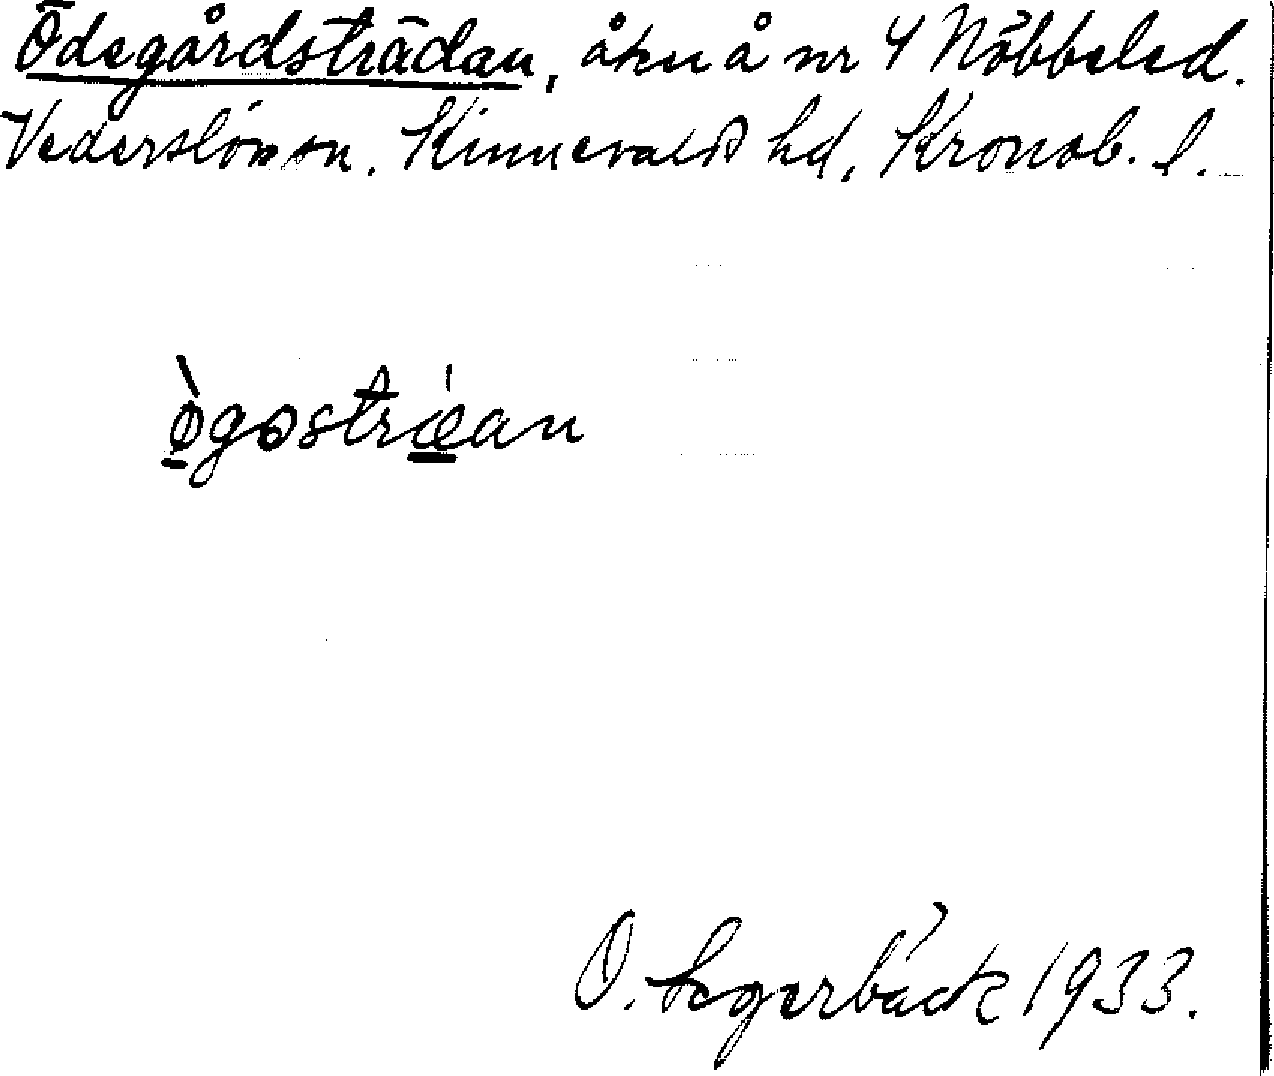 Ödegårdsträdan, åker å nr 4 Nöbbeled.
Vederslövs sn. Kinnevalds hd, Kronob. l.
ø̀gɷstrǽan
O. Segerbäck 1933.